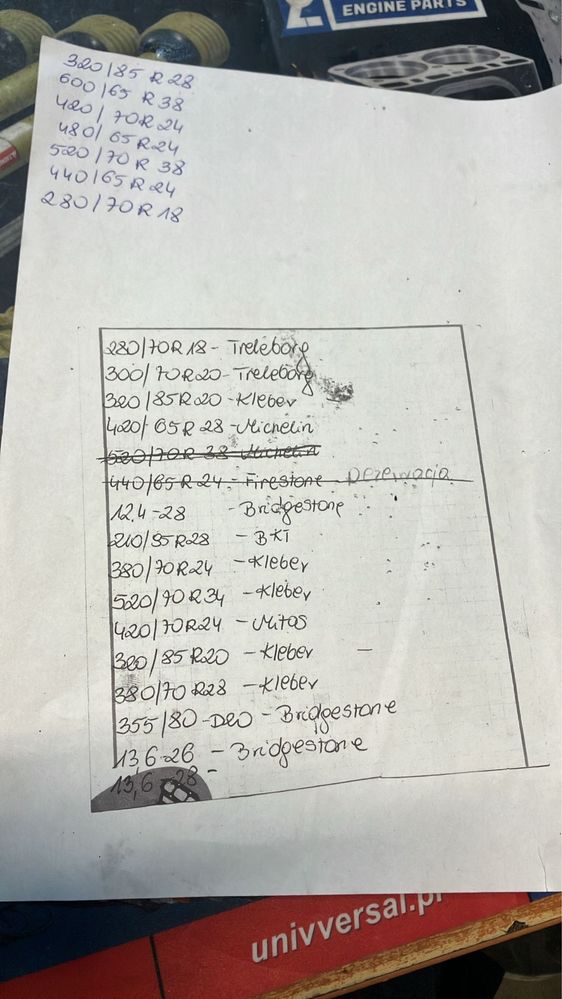 ENGINE PARTS
320/85 R 28
600/65 R 38
420/70R24
480/65R24
520/70R 38
440/65R24
280/70R 18
280/70R 18 - Treleborg
300/70R20 - Treleborg
320/85R20 - Kleber
420/65R 28 - Michelin
520/70R 38 - Michelin
440/65R24 - Firestone Rezerwacja
12.4-28 - Bridgestone
210/95R28 - BKT
380/70R24 - Kleber
520/70R34 - Kleber
420/70R24 - Mitas
320/85R20 - Kleber -
380/70R28 - Kleber
355/80-D20 - Bridgestone
13 6-26 - Bridgestone
13,6-28 -
univversal.pl